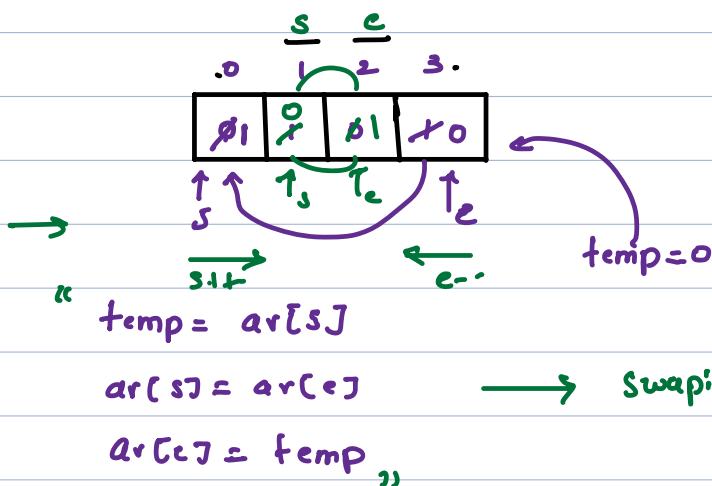 s e
0 1 2 3
0 1 1 0 0 1 1 0
s s e e
temp=0
s++ e--
“ temp = ar[s]
ar[s] = ar[e] → swapi
ar[e] = temp ”